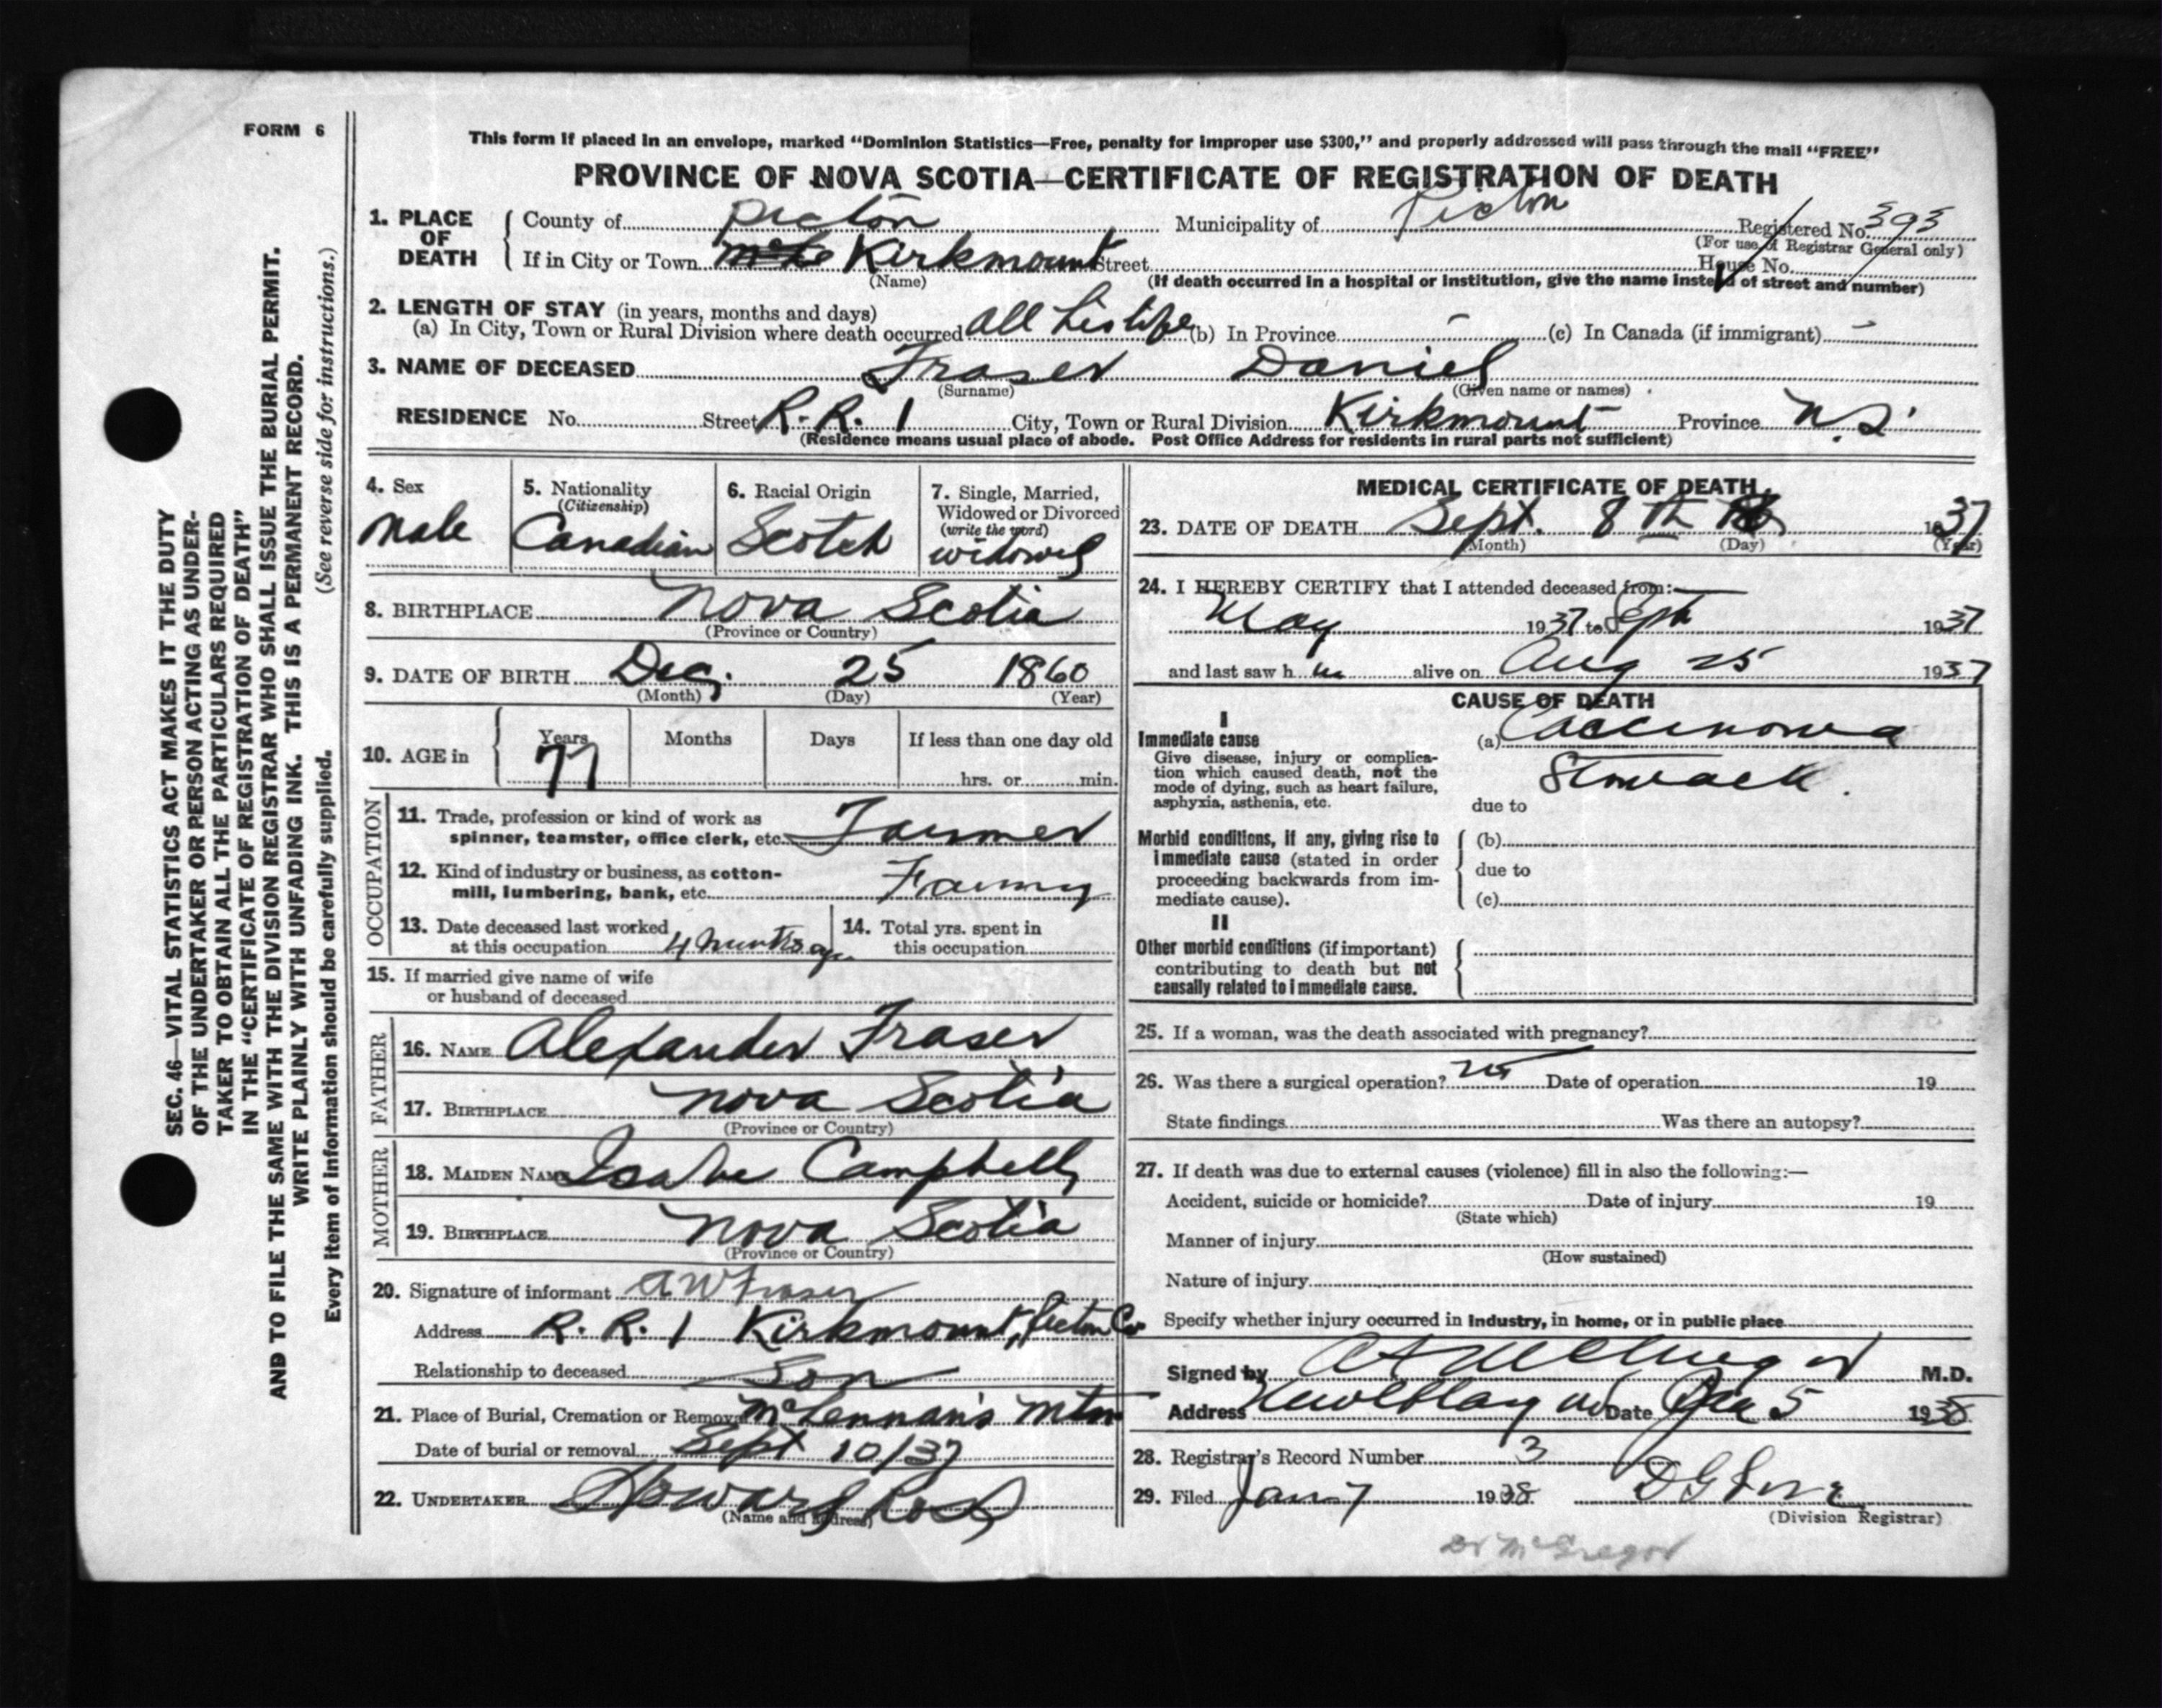 FORM 6
This form if placed in an envelope, marked "Dominion Statistics—Free, penalty for improper use $300," and properly addressed will pass through the mail "FREE"
PROVINCE OF NOVA SCOTIA—CERTIFICATE OF REGISTRATION OF DEATH
1. PLACE OF DEATH County of Pictou Municipality of Pictou Registered No. 393
(For use of Registrar General only)
If in City or Town Kirkmount Street House No.
(Name) (If death occurred in a hospital or institution, give the name instead of street and number)
2. LENGTH OF STAY (in years, months and days)
(a) In City, Town or Rural Division where death occurred All his life (b) In Province - (c) In Canada (if immigrant) -
3. NAME OF DECEASED Fraser Daniel
(Surname) (Given name or names)
RESIDENCE No. Street R. R. 1 City, Town or Rural Division Kirkmount Province N.S.
(Residence means usual place of abode. Post Office Address for residents in rural parts not sufficient)
4. Sex
Male
5. Nationality
(Citizenship)
Canadian
6. Racial Origin
Scotch
7. Single, Married,
Widowed or Divorced
(write the word)
widowed
8. BIRTHPLACE Nova Scotia
(Province or Country)
9. DATE OF BIRTH Dec. 25 1860
(Month) (Day) (Year)
10. AGE in Years Months Days If less than one day old
77 hrs. or min.
OCCUPATION
11. Trade, profession or kind of work as
spinner, teamster, office clerk, etc. Farmer
12. Kind of industry or business, as cotton-
mill, lumbering, bank, etc. Farming
13. Date deceased last worked
at this occupation 4 months ago
14. Total yrs. spent in
this occupation
15. If married give name of wife
or husband of deceased
FATHER
16. NAME Alexander Fraser
17. BIRTHPLACE Nova Scotia
(Province or Country)
MOTHER
18. MAIDEN NAME Campbell
19. BIRTHPLACE Nova Scotia
(Province or Country)
20. Signature of informant A W Fraser
Address R. R. 1 Kirkmount, Pictou Co
Relationship to deceased Son
21. Place of Burial, Cremation or Removal McLennan's Mtn
Date of burial or removal Sept 10/37
22. UNDERTAKER Howard Ross
(Name and address)
MEDICAL CERTIFICATE OF DEATH
23. DATE OF DEATH Sept. 8th 1937
(Month) (Day) (Year)
24. I HEREBY CERTIFY that I attended deceased from:—
May 1937 to Sept 1937
and last saw h im alive on Aug 25 1937
CAUSE OF DEATH
I
Immediate cause
Give disease, injury or complica-
tion which caused death, not the
mode of dying, such as heart failure,
asphyxia, asthenia, etc.
(a) Carcinoma
Stomach.
due to
Morbid conditions, if any, giving rise to
immediate cause (stated in order
proceeding backwards from im-
mediate cause).
(b)
due to
(c)
II
Other morbid conditions (if important)
contributing to death but not
causally related to immediate cause.
25. If a woman, was the death associated with pregnancy?
26. Was there a surgical operation? no Date of operation 19
State findings Was there an autopsy?
27. If death was due to external causes (violence) fill in also the following:—
Accident, suicide or homicide? Date of injury 19
(State which)
Manner of injury
(How sustained)
Nature of injury
Specify whether injury occurred in industry, in home, or in public place
Signed by M.D.
Address New Glasgow Date Jan 5 1938
28. Registrar's Record Number 3
29. Filed Jan 7 1938
(Division Registrar)
Dr McGregor
SEC. 46—VITAL STATISTICS ACT MAKES IT THE DUTY
OF THE UNDERTAKER OR PERSON ACTING AS UNDER-
TAKER TO OBTAIN ALL THE PARTICULARS REQUIRED
IN THE "CERTIFICATE OF REGISTRATION OF DEATH"
AND TO FILE THE SAME WITH THE DIVISION REGISTRAR WHO SHALL ISSUE THE BURIAL PERMIT.
WRITE PLAINLY WITH UNFADING INK. THIS IS A PERMANENT RECORD.
Every item of information should be carefully supplied. (See reverse side for instructions.)